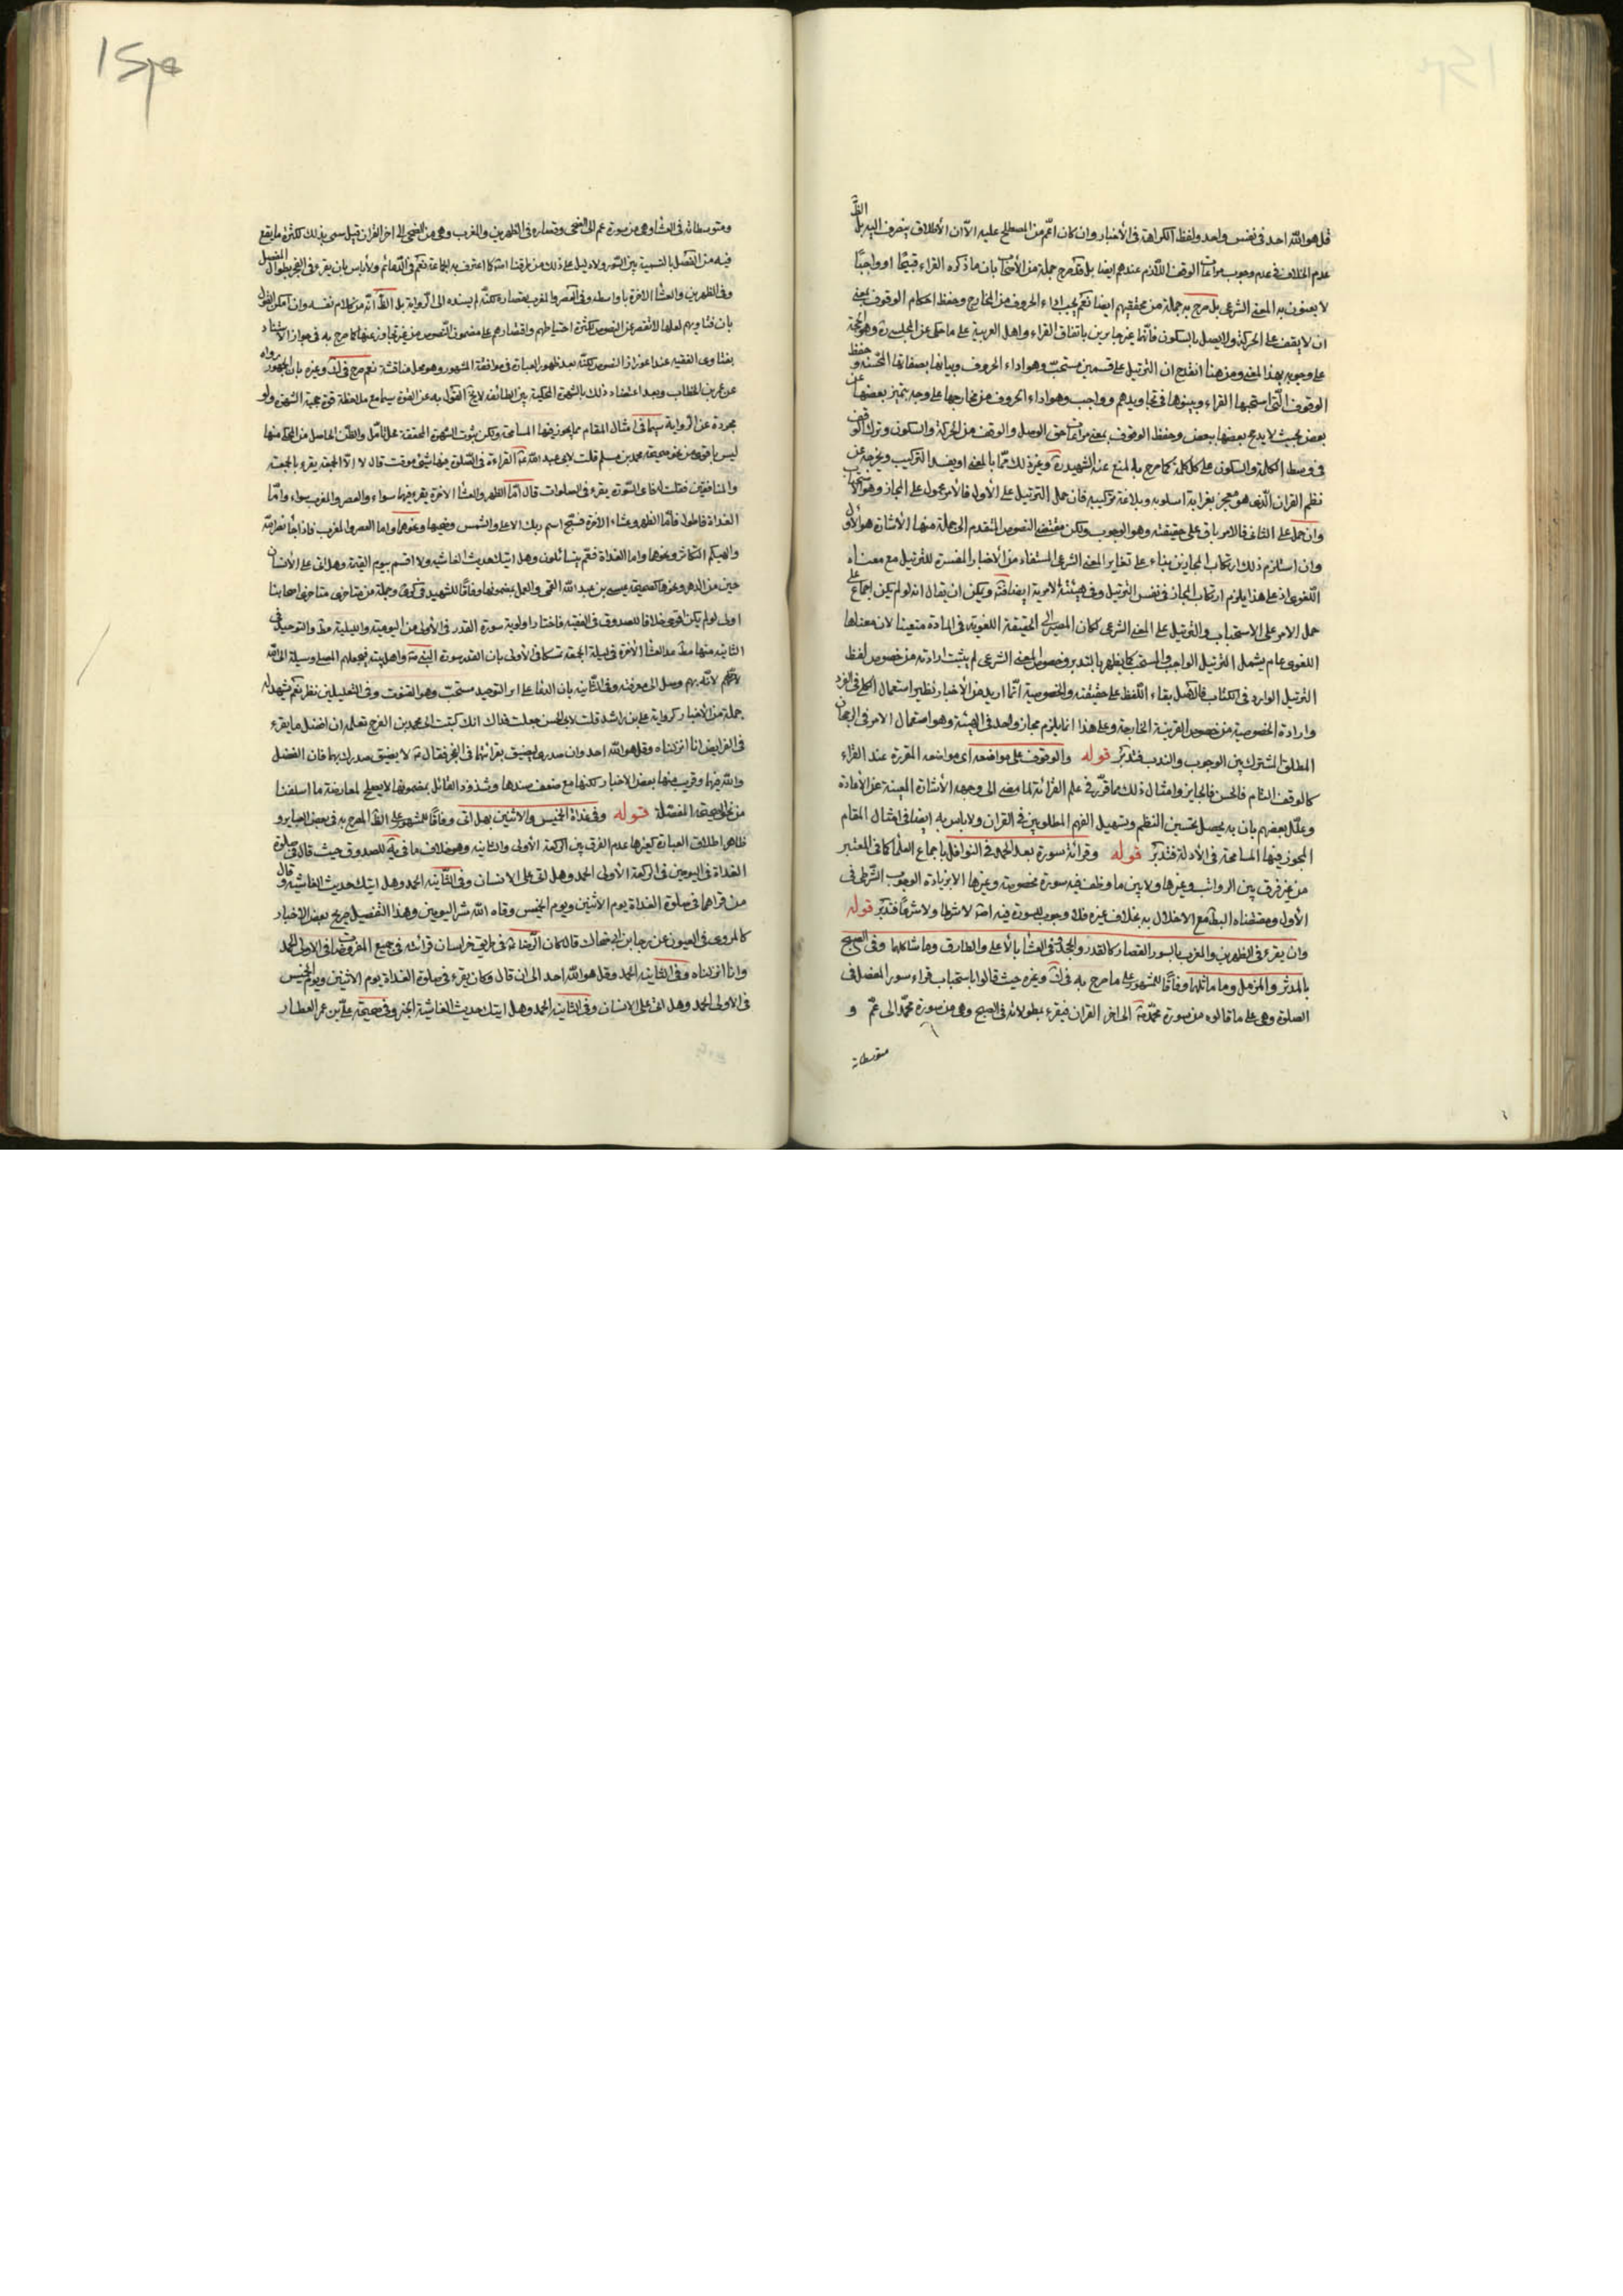 قل هو الله احد فى نفس واحد ولفظ الكراهة فى الأخبار وان كان اعم من المصطلح عليه الا ان الأطلاق ينصرف اليه بل الظ
عدم الخلاف فى عدم وجوب مراعات الوقف اللازم عندهم ايضا بل قد صرح جملة من الأصحاب بان ما ذكره القراء قبيحا او واجبا
لا يعنون به المعنى الشرعى بل صرح به جملة من محققيهم ايضا نعم يجب اداء الحروف من المخارج وحفظ احكام الوقوف بمعنى
ان لا يقف على الحركة ولا يصل بالسكون فانهما غير جايزين باتفاق القراء واهل العربية على ما حكى عن المجلسى ره وهو الحجة
على وجوبه بهذا المعنى ومن هنا انقدح ان الترتيل على قسمين مستحب وهو اداء الحروف وبيانها بصفاتها المحسنة وحفظ
الوقوف التى استحبها القراء وبينوها فى تجاويدهم وواجب وهو اداء الحروف من مخارجها على وجه يتميز بعضها عن
بعض بحيث لا يدمج بعضها ببعض وحفظ الوقوف بمعنى مراعات حق الوصل والوقف من الحركة والسكون وترك الوقف
فى وسط الكلمة والسكون على كل كلمة كما صرح بالمنع عنه الشهيد ره وغيره ذلك مما بالمعنى او يفسد التركيب ويخرجه عن
نظم القران الذى هو معجز بغرابة اسلوبه وبلاغة تركيبه فان حمل الترتيل على الأول فالأمر محمول على المجاز وهو الاستحباب
وان حمل على الثانى فالامر باق على حقيقته وهو الوجوب ولكن مقتضى النصوص المتقدم الى جملة منها الأشارة هو الأول
وان استلزم ذلك ارتكاب المجازين بناء على تغاير المعنى الشرعى المستفاد من الأخبار المفسرة للترتيل مع معناه
اللغوى اذ على هذا يلزم ارتكاب المجاز فى نفس الترتيل وفى هيئته الامرية ايضا فت ويمكن ان يقال انه لو لم يكن اجماع على
حمل الامر على الاستحباب والترتيل على المعنى الشرعى لكان المصير الى الحقيقة اللغوية فى المادة متعينا لان معناها
اللغوى عام يشمل الترتيل الواجب والمستحب كما يظهر بالتدبر وخصوص المعنى الشرعى لم يثبت ارادته من خصوص لفظ
الترتيل الوارد فى الكتاب فالاصل بقاء اللفظ على حقيقته والخصوصية انما اريد من الأخبار نظير استعمال الكلى فى الفرد
وارادة الخصوصية من خصوص القرينة الخارجة وعلى هذا انما يلزم مجاز واحد فى الهيئة وهو استعمال الامر فى الرجحان
المطلق المشترك بين الوجوب والندب فتدبر قوله والوقوف على مواضعه اى مواضعه المقررة عند القراء
كالوقف التام فالحسن فالجايز وامثال ذلك مما قرر فى علم القرائة لما مضى الى وجهه الأشارة المبينة عن الأفادة
وعلل بعضهم بان به يحصل تحسين النظم وتسهيل الفهم المطلوبين فى القران ولا باس به ايضا فى امثال المقام
المجوز فيها المسامحة فى الأدلة فتدبر قوله وقرائة سورة بعد الحمد فى النوافل باجماع العلماء كما فى المعتبر
من غير فرق بين الرواتب وغيرها ولا بين ما وظف فيه سورة مخصوصة وغيرها الا بزيادة الوجوب الشرطى فى
الأول ومقتضاه البطلان مع الاخلال به بخلاف غيره فلا وجوب للسورة فيه اصلا لا شرطا ولا شرعا فتدبر قوله
وان يقرء فى الظهرين والمغرب بالسور القصار كالقدر والجحد وفى العشاء بالأعلى والطارق وما شاكلهما وفى الصبح
بالمدثر والمزمل وما ماثلهما وفاقا للمشهور على ما صرح به فى ك وغيره حيث قالوا باستحباب قراءة سور المفصل فى
الصلوة وهى على ما قالوه من سورة محمد ص الى اخر القران فيقرء بمطولاته فى الصبح وهى من سورة محمد الى عم و
متوسطاته
ومتوسطاته فى العشاء وهى من سورة عم الى الضحى وقصاره فى الظهرين والمغرب وهى من الضحى الى اخر القران قيل سمى بذلك لكثرة ما يقع
فيه من الفصل بالتسمية بين السور ولا دليل على ذلك من طرقنا اصلا كما اعترف به الجماعة نعم فى الدعائم ولا باس بان يقرء فى الفجر بطوال المفصل
وفى الظهرين والعشاء الاخرة باواسطه وفى العصر والمغرب بقصاره لكنه لم يسنده الى الرواية بل الظ انه من كلام نفسه وان امكن القول
بان فتاويهم لعلها لا تقصر عن النصوص لكثرة احتياطهم واقتصارهم على مضمون النصوص من غير تجاوز عنها كما صرح به فى جواز الاستناد
بفتاوى الفقيه عند اعواز النصوص لكنه بعد ظهور العبارة فى موافقة المشهور وهو محل مناقشة نعم صرح فى ك وغيره بان الجمهور رواه
عن عمر بن الخطاب وبعد اعتضاد ذلك بالشهرة المحكية بين الطائفة لا يخ القول به عن القوة سيما مع ملاحظة قوة حجية الشهرة ولو
مجردة عن الرواية سيما فى امثال المقام مما يجوز فيها المسامحة ولكن ثبوت الشهرة المحققة محل تامل والظن الحاصل من المحكى منها
ليس باقوى من نحو صحيحة محمد بن مسلم قلت لابى عبد الله ع القراءة فى الصلوة فيها شئ موقت قال لا الا الجمعة يقرء بالجمعة
والمنافقين فقلت له فاى السور يقرء فى الصلوات قال اما الظهر والعشاء الاخرة يقرء فيهما سواء والعصر والمغرب سواء واما
الغداة فاطول فاما الظهر وعشاء الاخرة فسبح اسم ربك الاعلى والشمس وضحيها ونحوهما واما العصر والمغرب فاذا جاء نصر الله
والهيكم التكاثر ونحوها واما الغداة فعم يتسائلون وهل اتيك حديث الغاشية ولا اقسم بيوم القيمة وهل اتى على الأنسان
حين من الدهر ونحوها كصحيحة عيسى بن عبد الله القمى والعمل بمضمونها وفاقا للشهيد فى كرى وجملة من متاخرى متاخرى اصحابنا
اولى لو لم يكن اقوى خلافا للصدوق فى الفقيه فاختار اولوية سورة القدر فى الأولى من اليومية والليلية مط والتوحيد فى
الثانية منها مط عدا العشاء الأخرة فى ليلة الجمعة تمسكا فى الأولى بان القدر سورة النبى ص واهل بيته فيجعلهم المصلى وسيلة الى الله
لانه بهم وصل الى معرفته وفى الثانية بان الدعاء على اثر التوحيد مستجاب وهو القنوت وفى التعليلين نظر نعم يشهد له
جملة من الأخبار كرواية على بن راشد قلت لابى الحسن جعلت فداك انك كتبت الى محمد بن الفرج تعلمه ان افضل ما يقرء
فى الفرايض انا انزلناه وقل هو الله احد وان صدرى يضيق بقرائتهما فى الفجر فقال ع لا يضيق صدرك بهما فان الفضل
والله فيهما وقريب منها بعض الاخبار لكنها مع ضعف سندها وشذوذ القائل بمضمونها لا يصلح لمعارضة ما اسلفنا
من نحو الصحيحة المفصلة قوله وفى غداة الخميس والاثنين بهل اتى وفاقا للمشهور على الظ المصرح به فى بعض العباير و
ظاهر اطلاق العبارة كغيرها عدم الفرق بين الركعة الأولى والثانية وهو خلاف ما فى يه للصدوق حيث قال فى صلوة
الغداة فى اليومين فى الركعة الأولى الحمد وهل اتى على الانسان وفى الثانية الحمد وهل اتيك حديث الغاشية وقال
من قراهما فى صلوة الغداة يوم الأثنين ويوم الخميس وقاه الله شر اليومين وهذا التفصيل صريح بعض الأخبار
كالمروى فى العيون عن رجا بن ابى ضحاك قال كان الرضا ع فى طريق خراسان قرائته فى جميع المفروضات فى الاولى الحمد
وانا انزلناه وفى الثانية الحمد وقل هو الله احد الى ان قال وكان يقرء فى صلوة الغداة يوم الاثنين ويوم الخميس
فى الاولى الحمد وهل اتى على الانسان وفى الثانية الحمد وهل اتيك حديث الغاشية الخبر وفى صحيحة على بن عمر العطار